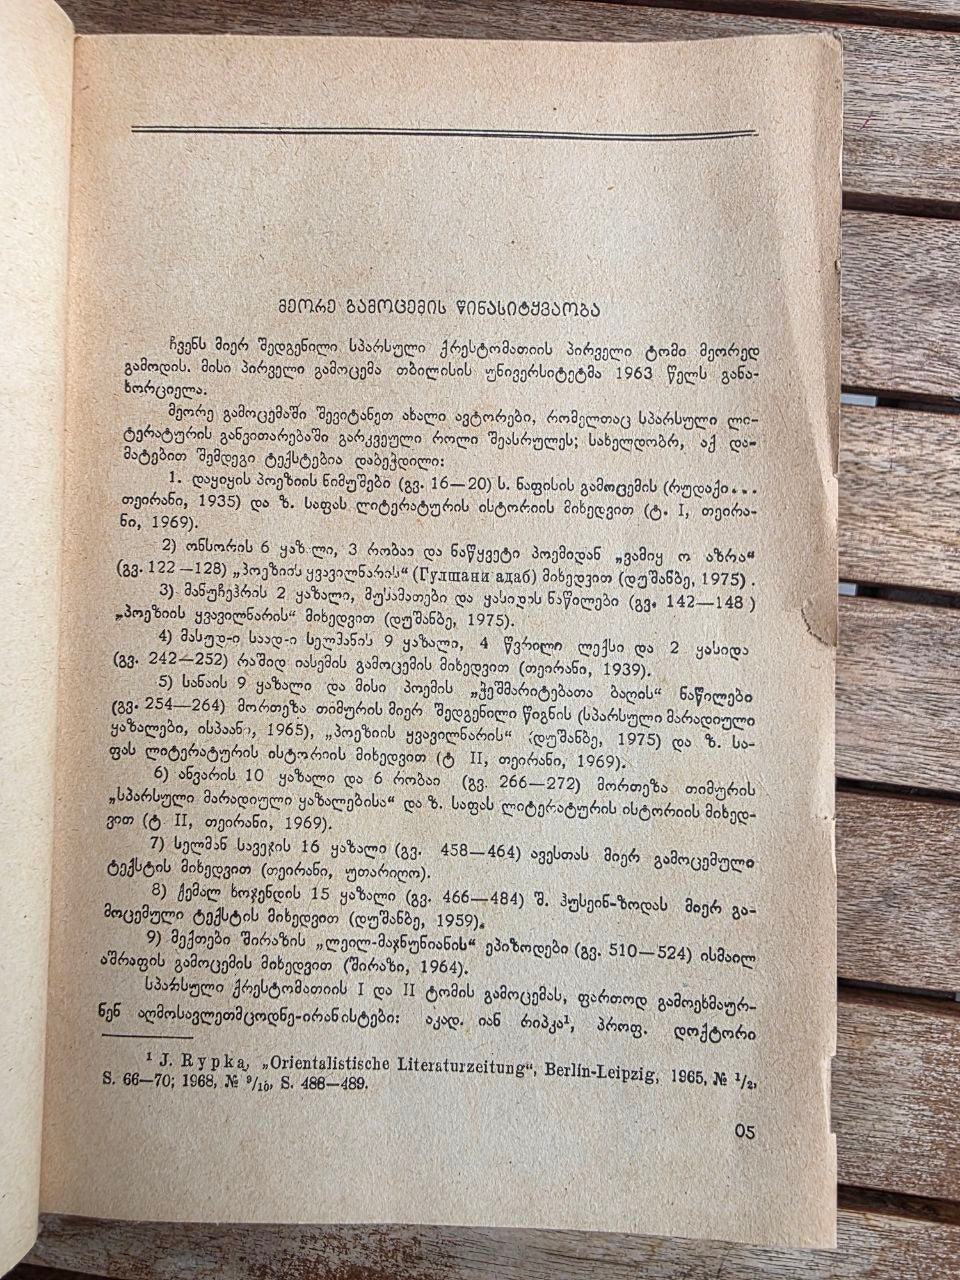 მეორე გამოცემის წინასიტყვაობა
ჩვენს მიერ შედგენილი სპარსული ქრესტომათიის პირველი ტომი მეორედ
გამოდის. მისი პირველი გამოცემა თბილისის უნივერსიტეტმა 1963 წელს განა-
ხორციელა.
მეორე გამოცემაში შევიტანეთ ახალი ავტორები, რომელთაც სპარსული ლი-
ტერატურის განვითარებაში გარკვეული როლი შეასრულეს; სახელდობრ, აქ და-
მატებით შემდეგი ტექსტებია დაბეჭდილი:
1. დაყიყის პოეზიის ნიმუშები (გვ. 16—20) ს. ნაფისის გამოცემის (რუდაქი...
თეირანი, 1935) და ზ. საფას ლიტერატურის ისტორიის მიხედვით (ტ. I, თეირა-
ნი, 1969).
2) ონსორის 6 ყაზალი, 3 რობაი და ნაწყვეტი პოემიდან „ვამიყ ო აზრა“
(გვ. 122—128) „პოეზიის ყვავილნარის“ (Гулшани адаб) მიხედვით (დუშანბე, 1975).
3) მანუჩეჰრის 2 ყაზალი, მუსამათები და ყასიდის ნაწილები (გვ. 142—148)
„პოეზიის ყვავილნარის“ მიხედვით (დუშანბე, 1975).
4) მასუდ-ი საად-ი სელმანის 9 ყაზალი, 4 წვრილი ლექსი და 2 ყასიდა
(გვ. 242—252) რაშიდ იასემის გამოცემის მიხედვით (თეირანი, 1939).
5) სანაის 9 ყაზალი და მისი პოემის „ჭეშმარიტებათა ბაღის“ ნაწილები
(გვ. 254—264) მორთეზა თიმურის მიერ შედგენილი წიგნის (სპარსული მარადიული
ყაზალები, ისპაანი, 1965), „პოეზიის ყვავილნარის“ (დუშანბე, 1975) და ზ. სა-
ფას ლიტერატურის ისტორიის მიხედვით (ტ II, თეირანი, 1969).
6) ანვარის 10 ყაზალი და 6 რობაი (გვ. 266—272) მორთეზა თიმურის
„სპარსული მარადიული ყაზალებისა“ და ზ. საფას ლიტერატურის ისტორიის მიხედ-
ვით (ტ II, თეირანი, 1969).
7) სელმან სავეჯის 16 ყაზალი (გვ. 458—464) ავესთას მიერ გამოცემული
ტექსტის მიხედვით (თეირანი, უთარიღო).
8) ქემალ ხოჯენდის 15 ყაზალი (გვ. 466—484) შ. ჰუსეინ-ზოდას მიერ გა-
მოცემული ტექსტის მიხედვით (დუშანბე, 1959).
9) მექთები შირაზის „ლეილ-მაჯნუნიანის“ ეპიზოდები (გვ. 510—524) ისმაილ
აშრაფის გამოცემის მიხედვით (შირაზი, 1964).
სპარსული ქრესტომათიის I და II ტომის გამოცემას, ფართოდ გამოეხმაურ-
ნენ აღმოსავლეთმცოდნე-ირანისტები: აკად. იან რიპკა¹, პროფ. დოქტორი
¹ J. Rypka, „Orientalistische Literaturzeitung“, Berlin-Leipzig, 1965, № ¹/₂,
S. 66—70; 1968, № ⁹/₁₀, S. 486—489.
05